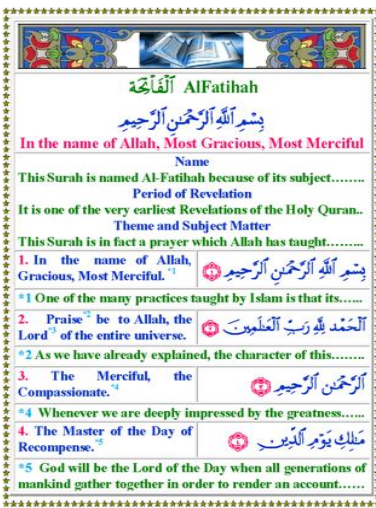 الْفَاتِحَة AlFatihah
بِسْمِ اللَّهِ الرَّحْمَٰنِ الرَّحِيمِ
In the name of Allah, Most Gracious, Most Merciful
Name
This Surah is named Al-Fatihah because of its subject........
Period of Revelation
It is one of the very earliest Revelations of the Holy Quran..
Theme and Subject Matter
This Surah is in fact a prayer which Allah has taught........
1. In the name of Allah,
Gracious, Most Merciful. *1
بِسْمِ اللَّهِ الرَّحْمَٰنِ الرَّحِيمِ ١
*1 One of the many practices taught by Islam is that its......
2. Praise*2 be to Allah, the
Lord*3 of the entire universe.
الْحَمْدُ لِلَّهِ رَبِّ الْعَالَمِينَ ٢
*2 As we have already explained, the character of this........
3. The Merciful, the
Compassionate.*4
الرَّحْمَٰنِ الرَّحِيمِ ٣
*4 Whenever we are deeply impressed by the greatness......
4. The Master of the Day of
Recompense.*5
مَالِكِ يَوْمِ الدِّينِ ٤
*5 God will be the Lord of the Day when all generations of
mankind gather together in order to render an account......